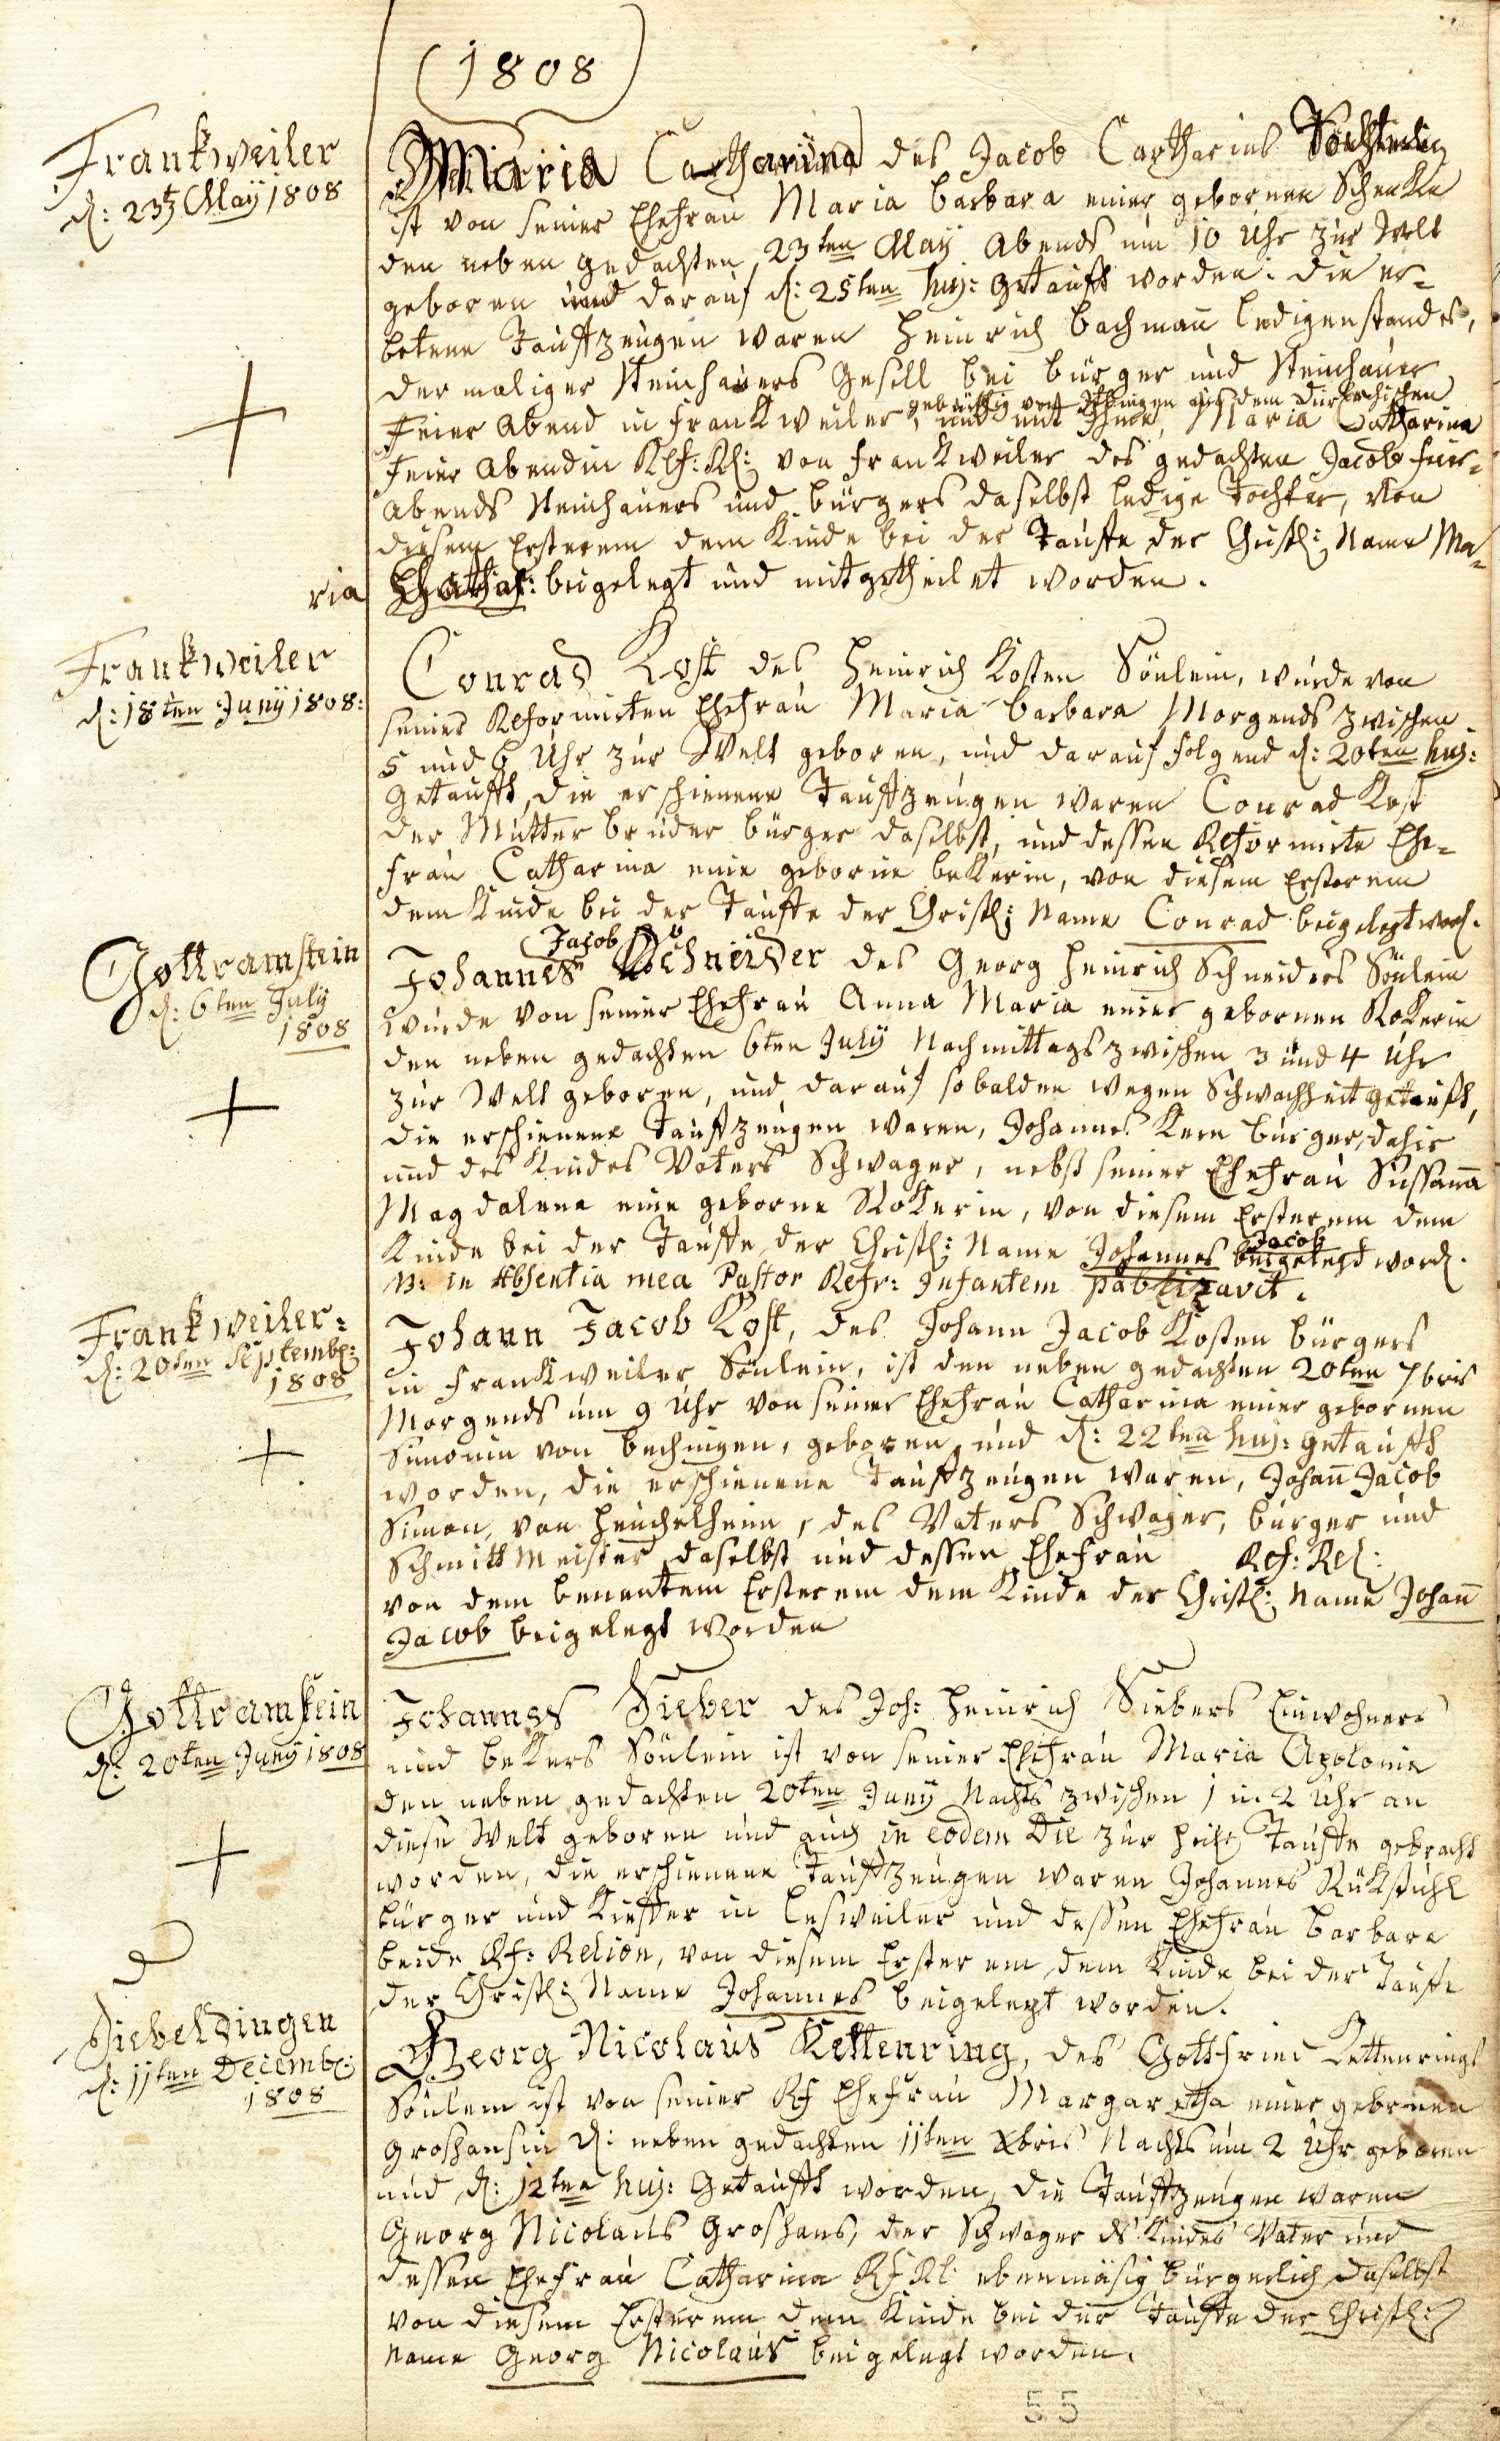 (1808)
Frankweiler
d: 23t May 1808
Maria Catharina des Jacob Catharius Töchterlein
ist von seiner Ehefrau Maria Barbara einer gebornen Schenkin
den neben gedachten 23ten May Abends um 10 Uhr zur Welt
geboren und darauf d: 25ten huj: getauft worden. die er-
betene Taufzeugen waren Heinrich Bachmañ ledigenstandes,
dermaliger Steinhauers Gesell bei bürger und Steinhauer
gebürtig von aus dem Durlachischen
Feier Abend in Frankweiler, und mit Ihme, Maria Catharina
Feier Abendin Ref: Rel: von Frankweiler des gedachten Jacob Feier-
Abends Steinhauers und bürgers daselbst ledige Tochter, von
diesem Ersterem dem Kinde bei der Tauffe der Christl: Name Ma-
ria Cathar: beigelegt und mitgetheilet worden.
Frankweiler
d: 18ten Juny 1808:
Conrad Kost des Heinrich Kosten Sönlein, wurde von
seiner Reformirten Ehefrau Maria Barbara Morgends zwischen
5 und 6 Uhr zur Welt geboren, und darauf folgend d: 20ten huj:
Getaufft, die erschienene Taufzeugen waren Conrad Kost
der Mutter bruder bürger daselbst, und dessen Reformirte Ehe-
frau Catharina eine geborne bekerin, von diesem Ersterem
dem Kinde bei der Tauffe der Christl: Name Conrad beigelegt word.
Gottramstein
d: 6ten July
1808
Jacob
Johannes Schneider des Georg Heinrich Schneiders Sönlein
wurde von seiner Ehefrau Anna Maria einer gebornen Stokerin
den neben gedachten 6ten July Nachmittags zwischen 3 und 4 Uhr
zur Welt geboren, und darauf sobalden wegen Schwachheit getauft,
die erschienene Taufzeugen waren, Johannes Kern bürger dahir
und des Kindes Vaters Schwager, nebst seiner Ehefrau Sussaña
Magdalena eine geborne Stokerin, von diesem Ersterem dem
Jacob
Kinde bei der Tauffe der Christl: Name Johannes beigelegt word.
N: in Absentia mea Pastor Refr: Infantem pabtizavit.
Frankweiler:
d: 20ten Septemb:
1808
Johann Jacob Kost, des Johann Jacob Kosten bürgers
in Frankweiler Sönlein, ist den neben gedachten 20ten 7bris
Morgends um 9 Uhr von seiner Ehefrau Catharina einer gebornen
Simonin von bechingen, geboren und d: 22ten huj: getaufft
worden, die erschienene Taufzeugen waren, Johañ Jacob
Simon, von Heuchelheim, des Vaters Schwager, bürger und
Schmitt Meister daselbst und dessen Ehefrau Ref: Rel:
von dem benentem Ersterem dem Kinde der Christl: Name Johañ
Jacob beigelegt worden
Gottramstein
d: 20ten Juny 1808
Johannes Sieber des Joh: Heinrich Siebers Einwohners
und bekers Sönlein ist von seiner Ehefrau Maria Apolonia
den neben gedachten 20ten Juny Nachts zwischen 1 u. 2 Uhr an
diese Welt geboren und auch in eodem Die zur heil: Tauffe gebracht
worden, die erschienene Taufzeugen waren Johannes Rükstuhl
bürger und Kieffer in und dessen Ehefrau Barbara
beide Rf: Relion, von diesem Ersterem dem Kinde bei der Tauffe
der Christl: Name Johannes beigelegt worden.
Siebeldingen
d: 11ten Decemb:
1808
Georg Nicolaus Kettenring, des Gottfried Kettenrings
Sönlein ist von seiner Rf Ehefrau Margaretha einer gebornen
Groshansin d: neben gedachten 11ten Xbris Nachts um 2 Uhr geboren
und d: 12ten huj: Getaufft worden, die Taufzeugen waren
Georg Nicolaus Groshans, der Schwager ds Kindes Vater und
dessen Ehefrau Catharina Rf Rl: ebenmäsig bürgerlich daselbst
von diesem Ersterem dem Kinde bei der Tauffe der Christl:
Name Georg Nicolaus beigelegt worden.
55